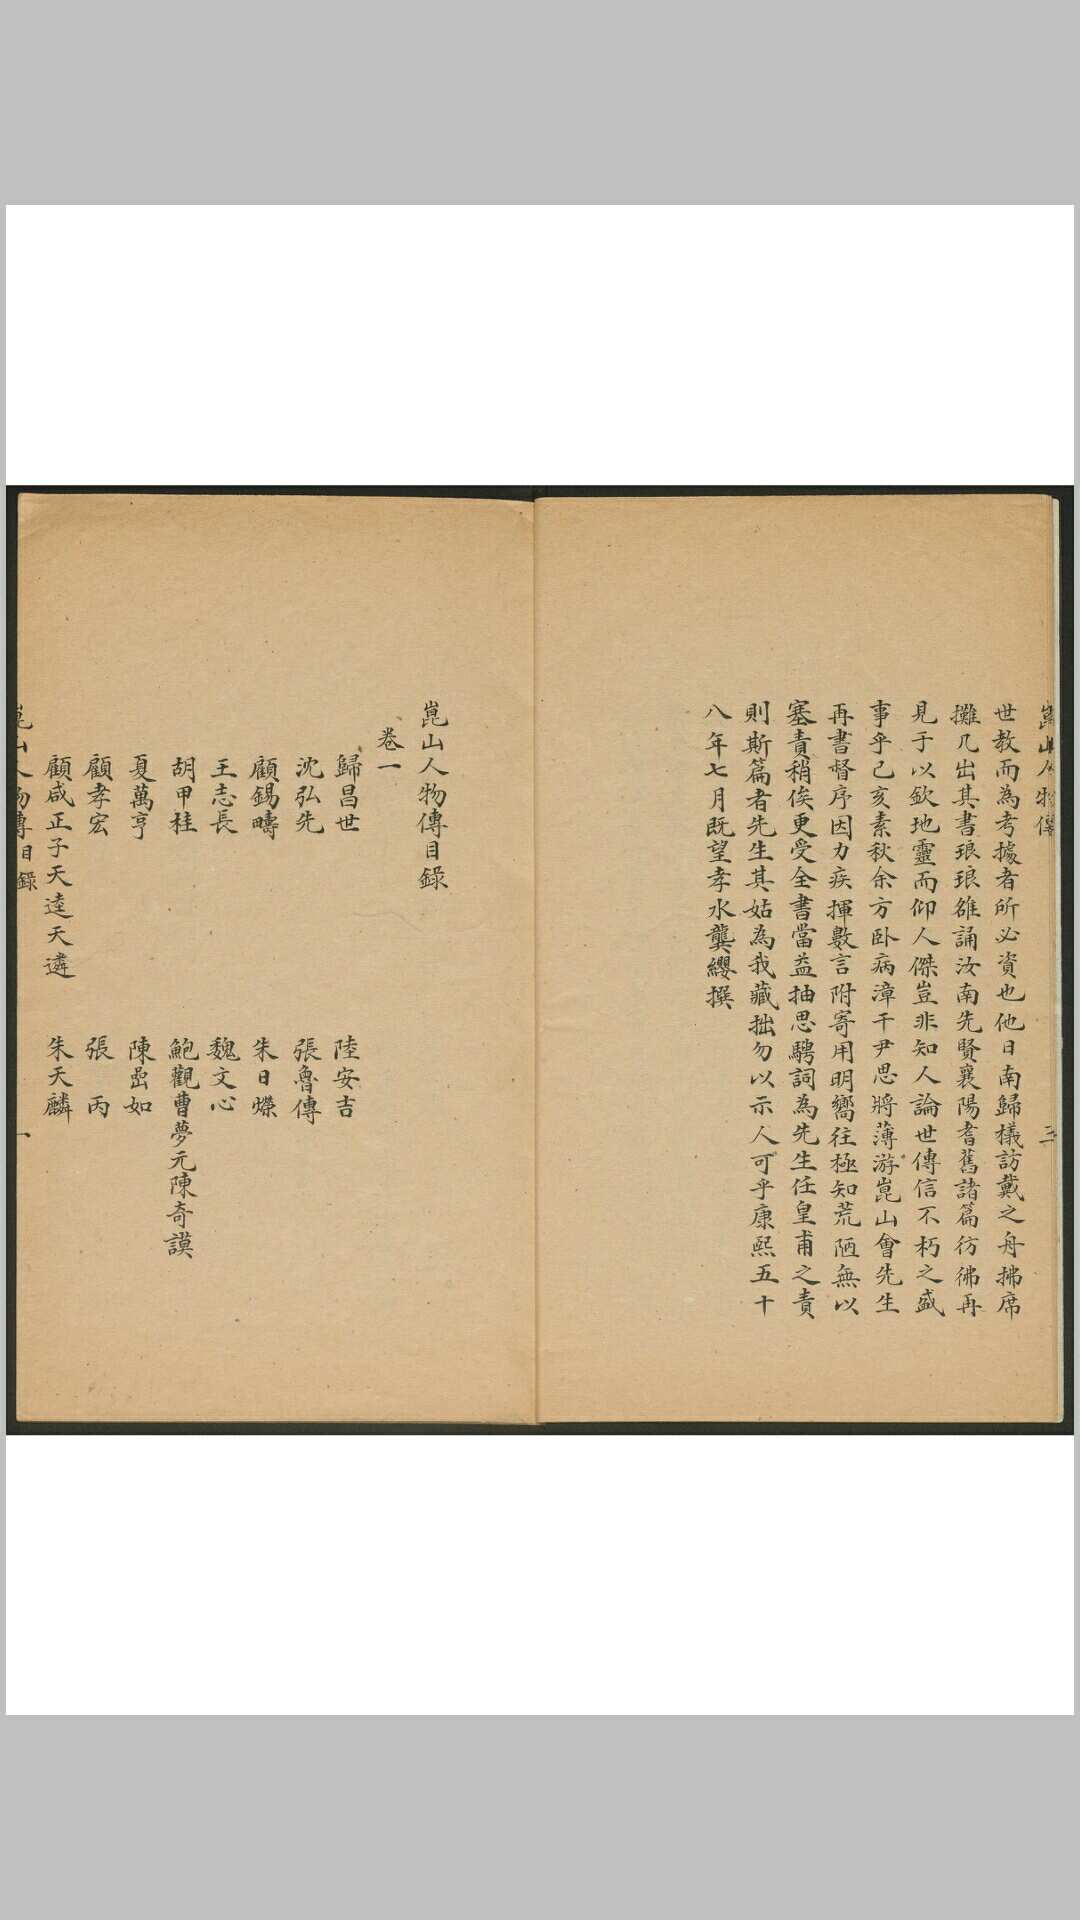 崑山人物傳
三
世教而為考據者所必資也他日南歸檥訪戴之舟拂席
攤几出其書琅琅雒誦汝南先賢襄陽耆舊諸篇彷彿再
見于以欽地靈而仰人傑豈非知人論世傳信不朽之盛
事乎己亥素秋余方卧病漳干尹思將薄游崑山會先生
再書督序因力疾揮數言附寄用明嚮往極知荒陋無以
塞責稍俟更受全書當益抽思騁詞為先生任皇甫之責
則斯篇者先生其姑為我藏拙勿以示人可乎康熙五十
八年七月既望孝水龔纓撰
崑山人物傳目錄
卷一
歸昌世 陸安吉
沈弘先 張魯傳
顧錫疇 朱日㷸
王志長 魏文心
胡甲桂 鮑觀曹夢元陳奇謨
夏萬亨 陳嵒如
顧孝宏 張丙
顧咸正子天逵天遴 朱天麟
崑山人物傳目錄
一